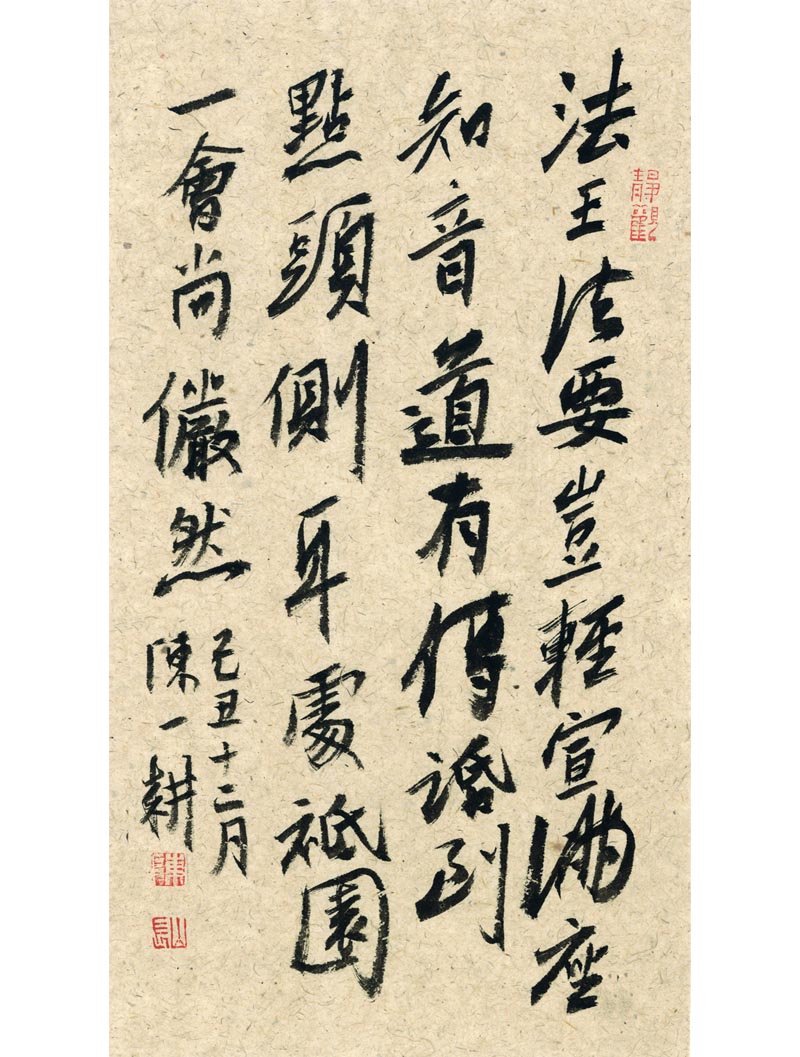 靜觀
法王法要豈輕宣滿座
知音道有傳諙到
點頭側耳處祇園
一會尚儼然
己丑十二月
陳一耕